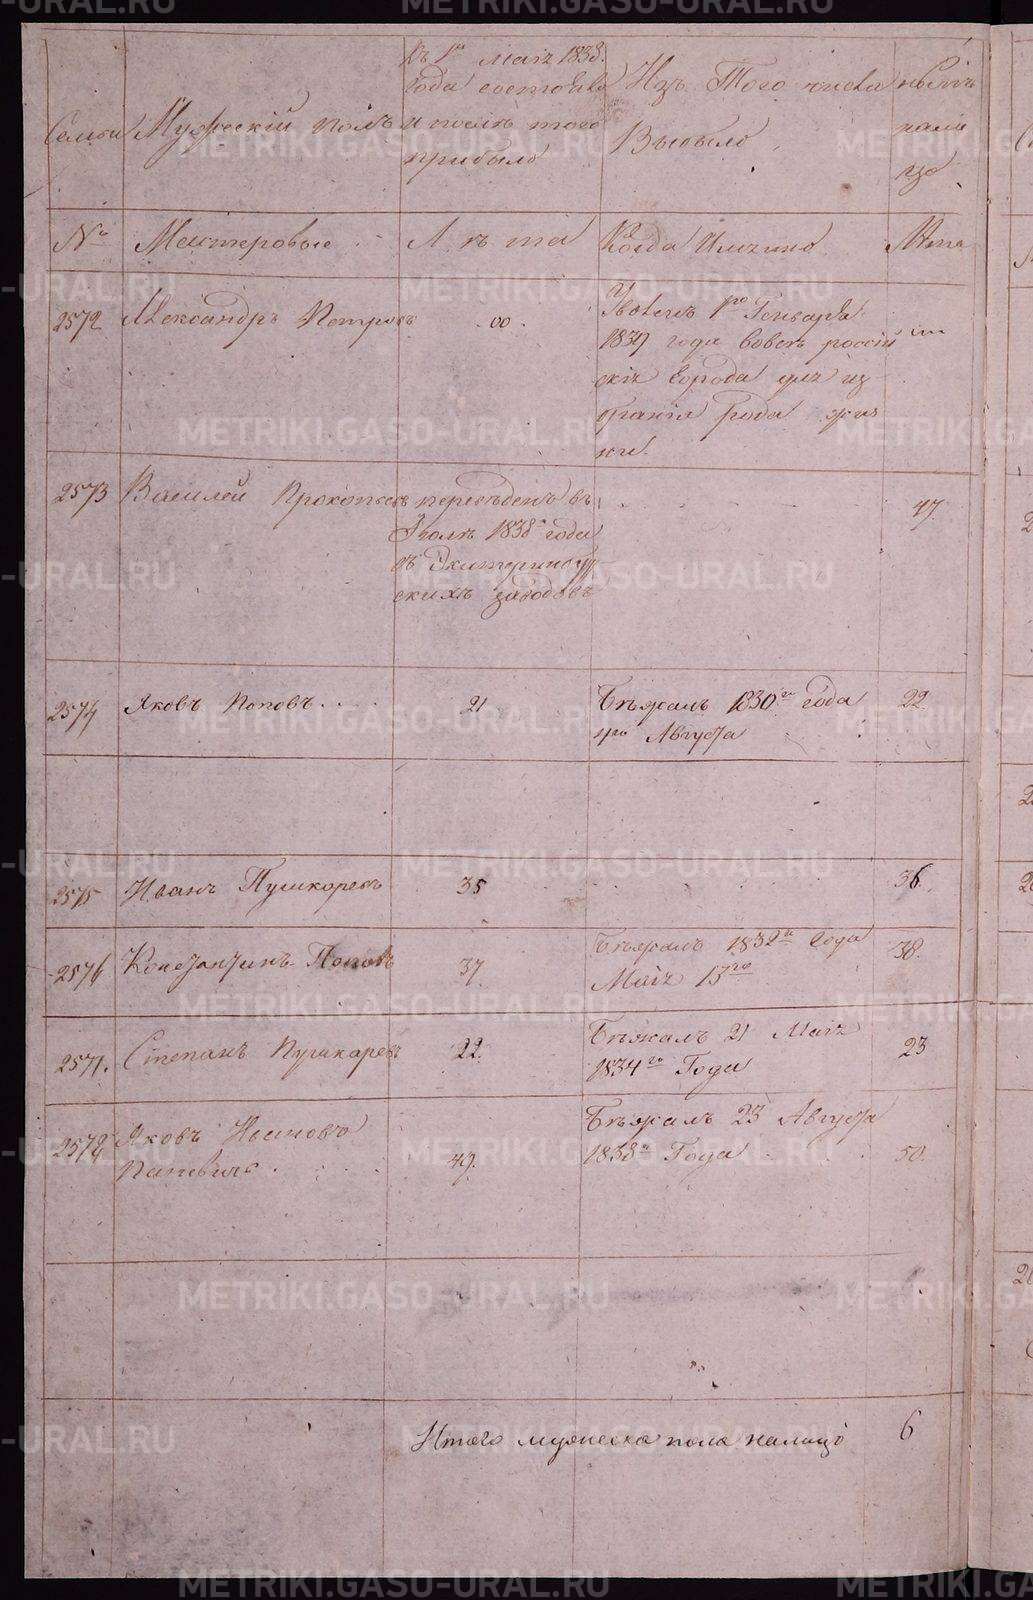 Къ 1му Маія 1838.
года состояло
и послѣ того
прибыло
Изъ Того числа
Выбыло
нынѣ
нали
цо
Семьи
Мужескій полъ
№
Мастеровые
Лѣта
Когда Имянно
Лѣта
2572
Александръ Петровъ
00
Уволенъ 1го Генваря
1839 года вовсѣ россій
скія города для из
бранія рода жиз
ни.
2573
Василей Прокопьевъ
переведенъ въ
Iюлѣ 1838 года
съ Екатеринбург
скихъ заводовъ
47
2574
Яковъ Поповъ
21
Бѣжалъ 1830го года
Августа
22
2575
Иванъ Пушкоревъ
35
36
2576
Констэнтинъ Поповъ
37
Бѣжалъ 1832го Года
Маія 13го
38
2577.
Степанъ Пушкаревъ
22
Бѣжалъ 21 Маія
1834го Года
23
2578
Яковъ Ивановъ
49
Бѣжалъ 23 Августа
1838го Года
50
Итого мужеска пола налицо
6
METRIKI.GASO-URAL.RU